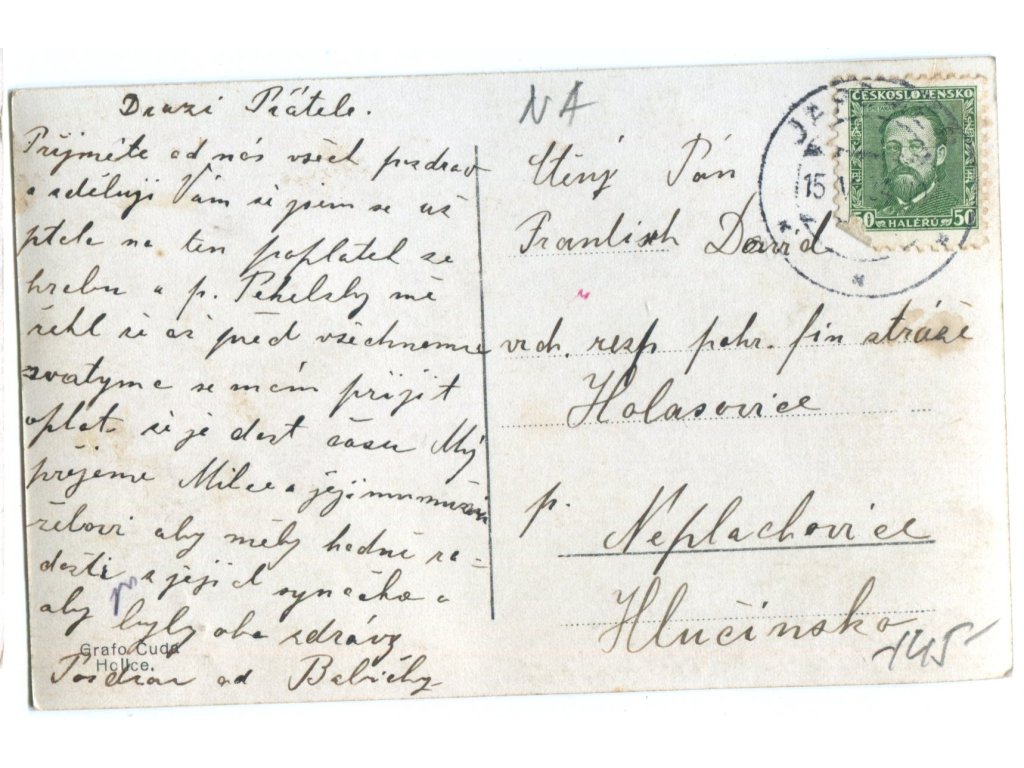 Drazí Přátele.
Přijměte od nás všech pozdrav
a sděluji Vám že jsem se už
ptala na ten poplatek ze
hrobu a p. Pekelsky mě
řekl že až před všechnemi
svatyma se mám přijít
oplat. že je dost času My
přejeme Milce a její mu
želovi aby měly hodně ra=
dosti z jejich synáčka a
aby byly oba zdrávy
Pozdrav od Babičky
Grafo Čuda
Holice.
NA
Ctěný Pán
František David
vrch. resp. pohr. fin stráže
Holasovice
p. Neplachovice
Hlučínsko
145
ČESKOSLOVENSKO
50 HALÉŘŮ 50
JA
15